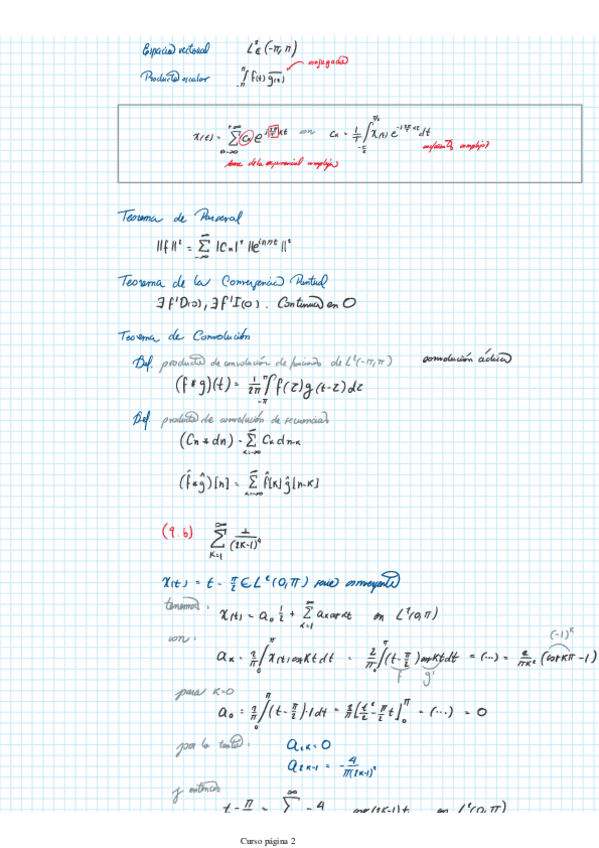 Espacio vectorial L²_C(-π,π)
Producto escalar ∫_{-π}^{π} f(t) \overline{g(t)} conjugado
x(t) = Σ_{n=-∞}^{+∞} c_k e^{j (2π/T) kt} con c_k = 1/T ∫_{-T/2}^{T/2} x(t) e^{-j (2π/T) kt} dt
coeficiente complejo
base de la exponencial compleja
Teorema de Parseval
||f||² = Σ_{-∞}^{∞} |Cn|² ||e^{int}||²
Teorema de la Convergencia Puntual
∃ f'D(0), ∃ f'I(0). Continua en 0
Teorema de Convolución
Def. producto de convolución de funciones de L²(-π,π) convolución cíclica
(f * g)(t) = 1/2π ∫_{-π}^{π} f(τ) g(t-τ) dτ
Def. producto de convolución de secuencias
(Cn * dn) = Σ_{k=-∞}^{∞} Ck dn-k
(f̂ * ĝ)[n] = Σ_{k=-∞}^{∞} f̂[k] ĝ[n-k]
(9.b) Σ_{k=1}^{∞} 1/(2k-1)⁴
x(t) = t - π/2 ∈ L²(0,π) serie
tenemos: x(t) = a₀ 1/2 + Σ_{k=1}^{∞} ak cos kt en L²(0,π)
con: (-1)^k
ak = 2/π ∫_0^π x(t) cos kt dt = 2/π ∫_0^π (t - π/2) cos kt dt = (...) = 2/πk² (cos kπ - 1)
f g'
para k=0
a₀ = 2/π ∫_0^π (t - π/2)·1 dt = 2/π [t²/2 - π/2 t]_0^π = (...) = 0
por lo tanto: a₂k = 0
a₂k-1 = - 4/π(2k-1)²
y entonces
t - π = Σ^{∞} - 4 cos(2k-1)t en L²(0,π)
Curso página 2